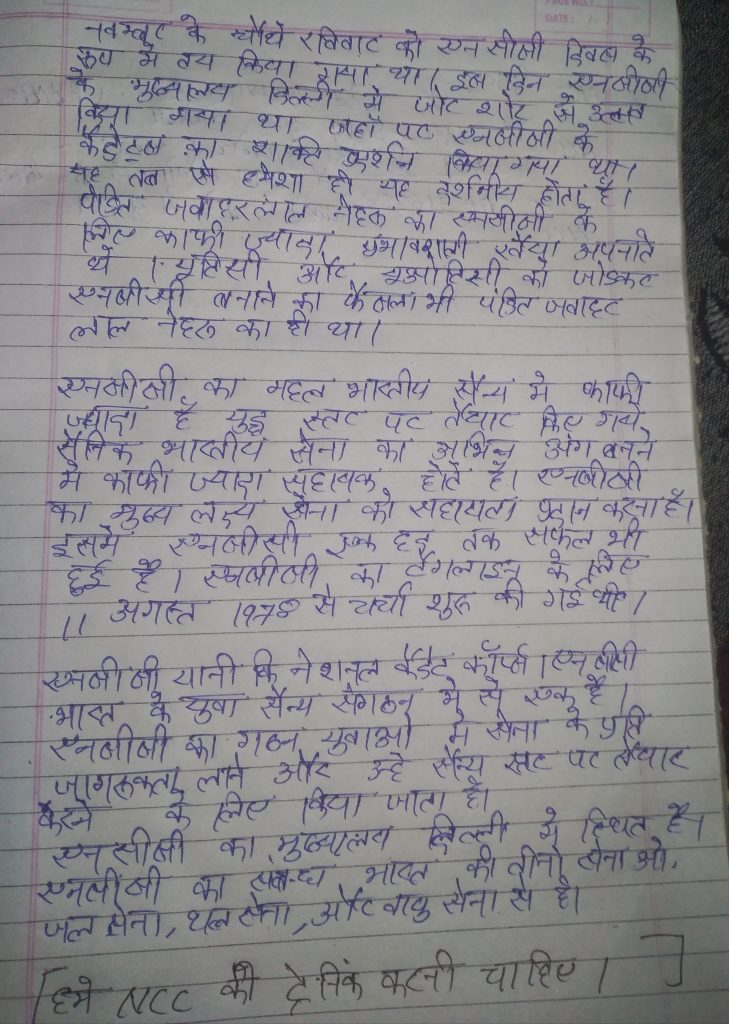 नवम्बर के चौथे रविवार को एनसीसी दिवस के
रूप में तय किया गया था। इस दिन एनसीसी
के मुख्यालय दिल्ली में जोर शोर से उत्सव
किया गया था जहाँ पर एनसीसी के
कैडेट्स का शक्ति प्रदर्शन किया गया था।
यह तब से हमेशा ही यह दर्शनीय होता है।
पंडित जवाहरलाल नेहरू का एनसीसी के
लिए काफी ज्यादा प्रभावशाली रवैया अपनाते
थे। यूओटीसी को जोडकर
एनसीसी बनाने का फैसला भी पंडित जवाहर
लाल नेहरु का ही था।
एनसीसी का महत्व भारतीय सैन्य मे काफी
ज्यादा है युद्ध स्तर पर तैयार किए गये
सैनिक भारतीय सेना का अभिन्न अंग बनने
मे काफी ज्यादा सहायक होते है। एनसीसी
का मुख्य लक्ष्य सेना को सहायता प्रदान करना है।
इसमें एनसीसी एक हद तक सफल भी
हुई है। एनसीसी का टैगलाइन के लिए
11 अगस्त 1978 से चर्चा शुरू की गई थी।
एनसीसी यानी कि नेशनल कैडेट कॉर्प्स। एनसीसी
भारत के युवा सैन्य संगठन में से एक है।
एनसीसी का गठन युवाओ मे सेना के प्रति
जागरूकता लाने और उन्हे सैन्य स्तर पर तैयार
करने के लिए किया जाता है।
एनसीसी का मुख्यालय दिल्ली मे स्थित है।
एनसीसी का सम्बन्ध भारत की तीनो सेनाओ,
जल सेना, थल सेना, और वायु सेना से है।
[हमे NCC की ट्रेनिंग करनी चाहिए।]
PAGE NO.:
DATE: